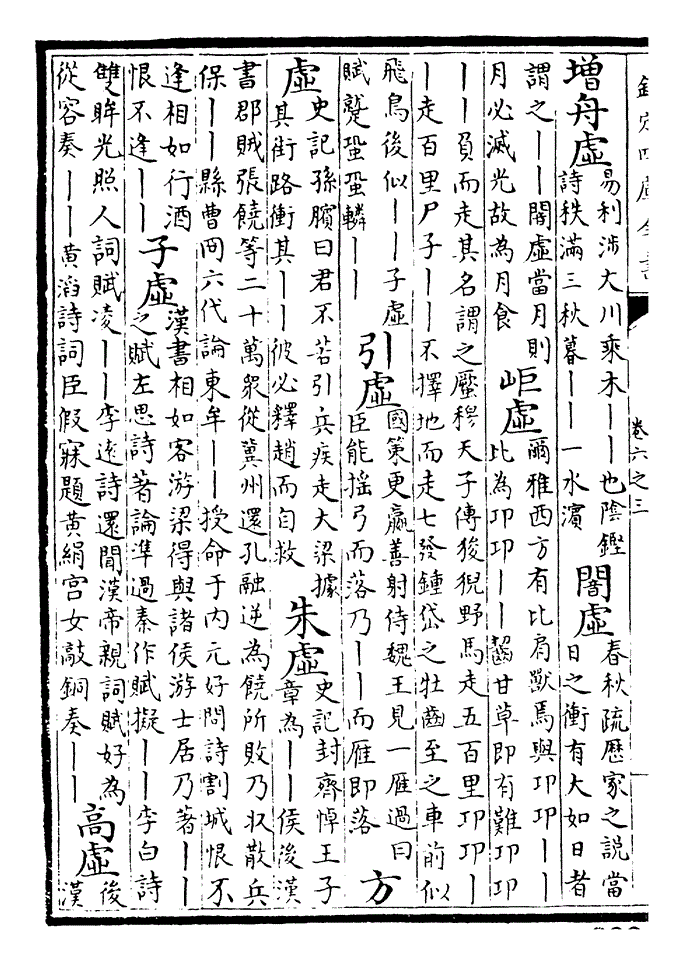 欽定四庫全書
卷六之三
增舟虛
易利涉大川乘木丨丨也陰鏗
詩秩滿三秋暮丨丨一水濱
闇虛
春秋疏歷家之說當
日之衝有大如日者
謂之丨丨闇虛當月則
月必滅光故為月食
岠虛
爾雅西方有比肩獸焉與卭卭丨丨
比為卭卭丨丨齧甘草即有難卭卭
丨丨負而走其名謂之蟨穆天子傳狻猊野馬走五百里卭卭丨
丨走百里尸子丨丨不擇地而走七發鍾岱之牡齒至之車前似
飛鳥後似丨丨子虛
賦蹵蛩蛩轔丨丨
引虛
國策更羸善射侍魏王見一雁過曰
臣能搖弓而落乃丨丨而雁即落
方
虛
史記孫臏曰君不若引兵疾走大梁據
其街路衝其丨丨彼必釋趙而自救
朱虛
史記封齊悼王子
章為丨丨侯後漢
書郡賊張饒等二十萬衆從冀州還孔融逆為饒所敗乃收散兵
保丨丨縣曹冏六代論東牟丨丨授命于内元好問詩割城恨不
逢相如行酒
恨不逢丨丨
子虛
漢書相如客游梁得與諸侯游士居乃著丨丨
之賦左思詩著論準過秦作賦擬丨丨李白詩
雙眸光照人詞賦凌丨丨李遠詩還聞漢帝親詞賦好為
從容奏丨丨黄滔詩詞臣假寐題黄絹宫女敲銅奏丨丨
高虛
後
漢